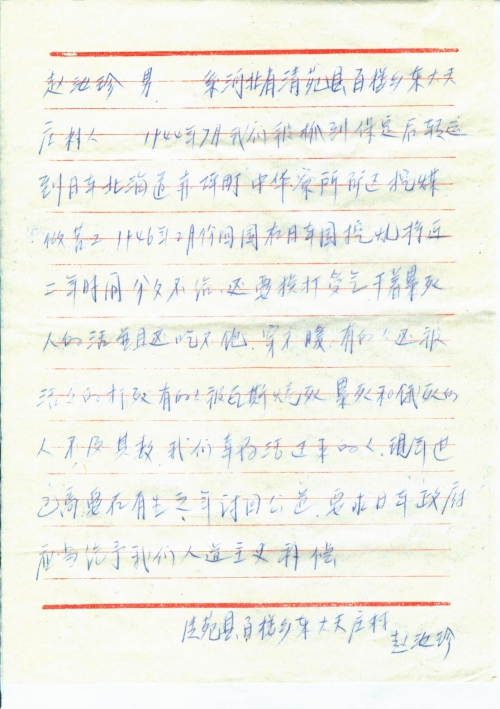 赵治珍 男 系河北省清苑县百楼乡东大夫
庄村人 1944年7月我们被抓到保定后转运
到日本北海道赤坪町中华寮所 挖煤
做苦工 1946年2月份回国在日本国挖煤将近
二年时间分文不给、还要挨打受气干着累死
人的活而且还吃不饱、穿不暖、有的人还被
活活的打死有的人被瓦斯烧死 累死和饿死的
人不及其数 我们幸存活过来的人、现年进
已高要在有生之年讨回公道、要求日本政府
应当给予我们人道主义补偿
清苑县百楼乡东大夫庄村
赵治珍